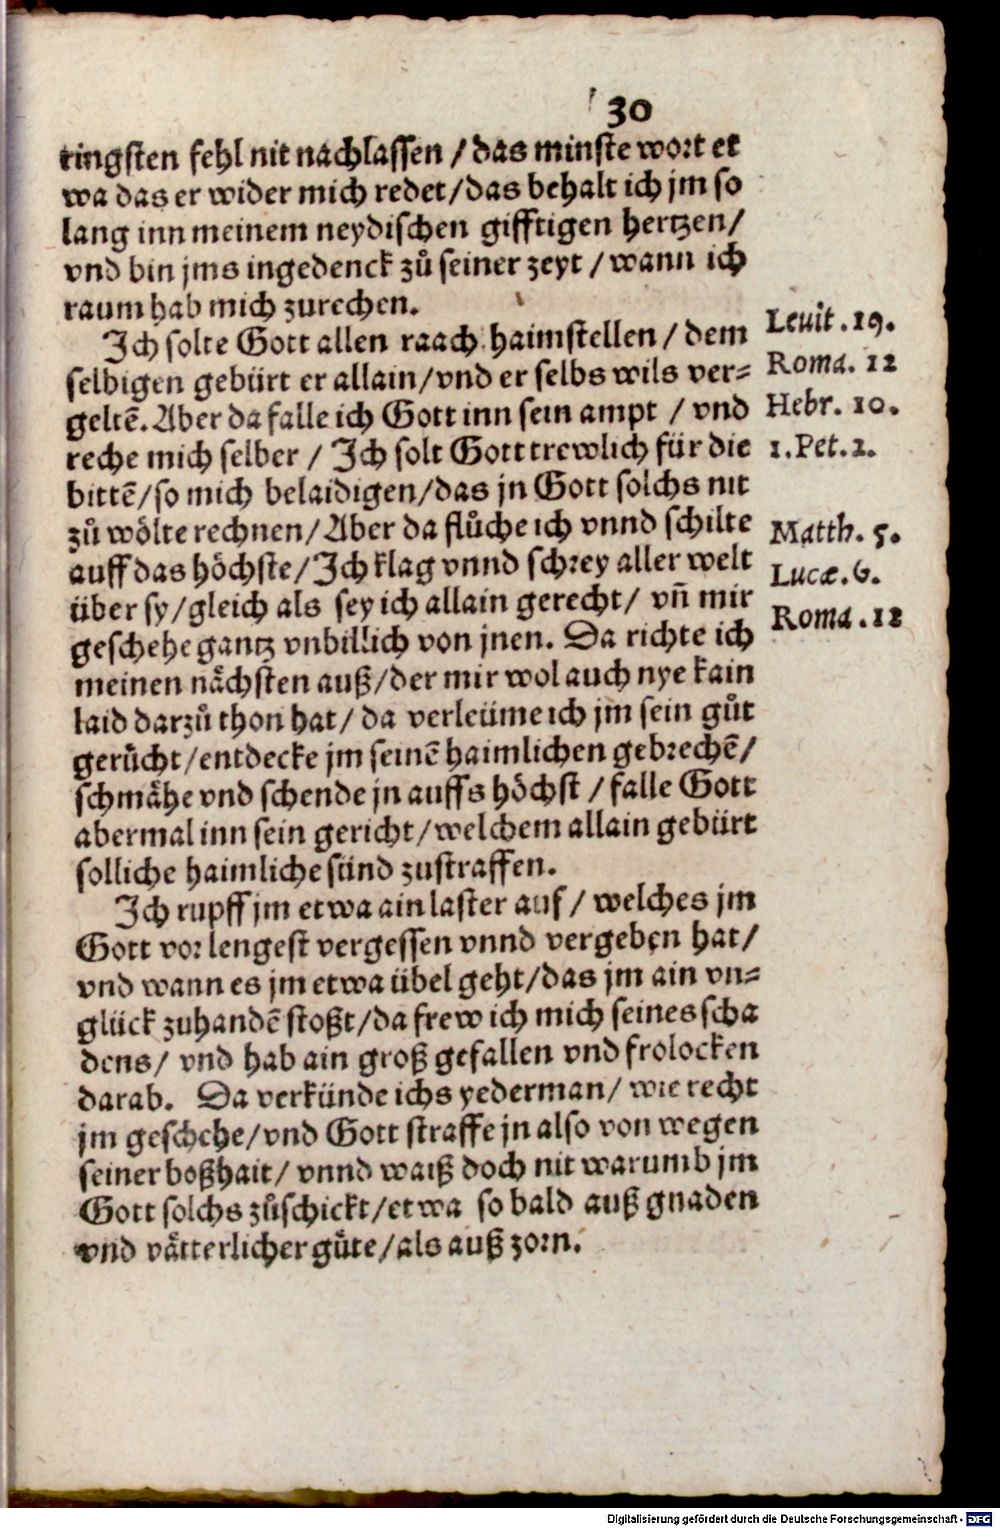 30
ringsten fehl nit nachlassen / das minste wort et
wa das er wider mich redet / das behalt ich jm so
lang inn meinem neydischen gifftigen hertzen /
vnd bin jms ingedenck zů seiner zeyt / wann ich
raum hab mich zurechen.
Ich solte Gott allen raach haimstellen / dem
selbigen gebürt er allain / vnd er selbs wils ver=
geltẽ. Aber da falle ich Gott inn sein ampt / vnd
reche mich selber / Ich solt Gott trewlich für die
bittẽ / so mich belaidigen / das jn Gott solchs nit
zů wölte rechnen / Aber da flůche ich vnnd schilte
auff das höchste / Ich klag vnnd schrey aller welt
über sy / gleich als sey ich allain gerecht / vñ mir
geschehe gantz vnbillich von jnen. Da richte ich
meinen nächsten auß / der mir wol auch nye kain
laid darzů thon hat / da verleüme ich jm sein gůt
gerücht / entdecke jm seinẽ haimlichen gebrechẽ /
schmähe vnd schende jn auffs höchst / falle Gott
abermal inn sein gericht / welchem allain gebürt
solliche haimliche sünd zustraffen.
Ich rupff jm etwa ain laster auf / welches jm
Gott vor lengest vergessen vnnd vergeben hat /
vnd wann es jm etwa übel geht / das jm ain vn=
glück zuhandẽ stoßt / da frew ich mich seines scha
dens / vnd hab ain groß gefallen vnd frolocken
darab. Da verkünde ichs yederman / wie recht
jm geschehe / vnd Gott straffe jn also von wegen
seiner boßhait / vnnd waiß doch nit warumb jm
Gott solchs zůschickt / etwa so bald auß gnaden
vnd vätterlicher güte / als auß zorn.
Leuit. 19.
Roma. 12
Hebr. 10.
1. Pet. 2.
Matth. 5.
Lucæ. 6.
Roma. 12
Digitalisierung gefördert durch die Deutsche Forschungsgemeinschaft - DFG